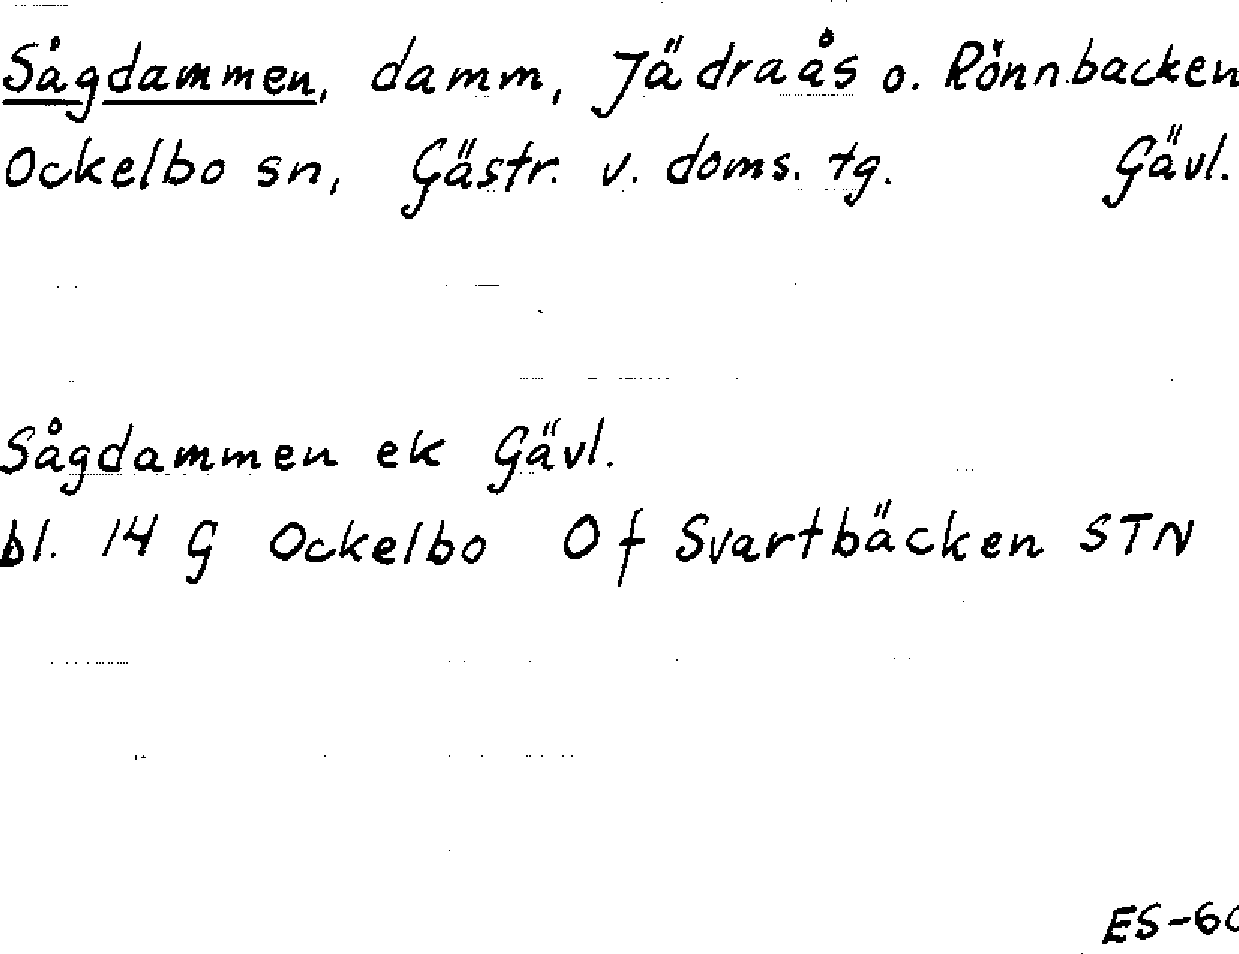 Sågdammen, damm, Jädraås o. Rönnbacken
Ockelbo sn, Gästr. v. doms. tg. Gävl.
Sågdammen ek Gävl.
bl. 14 G Ockelbo O f Svartbäcken STN
ES-60